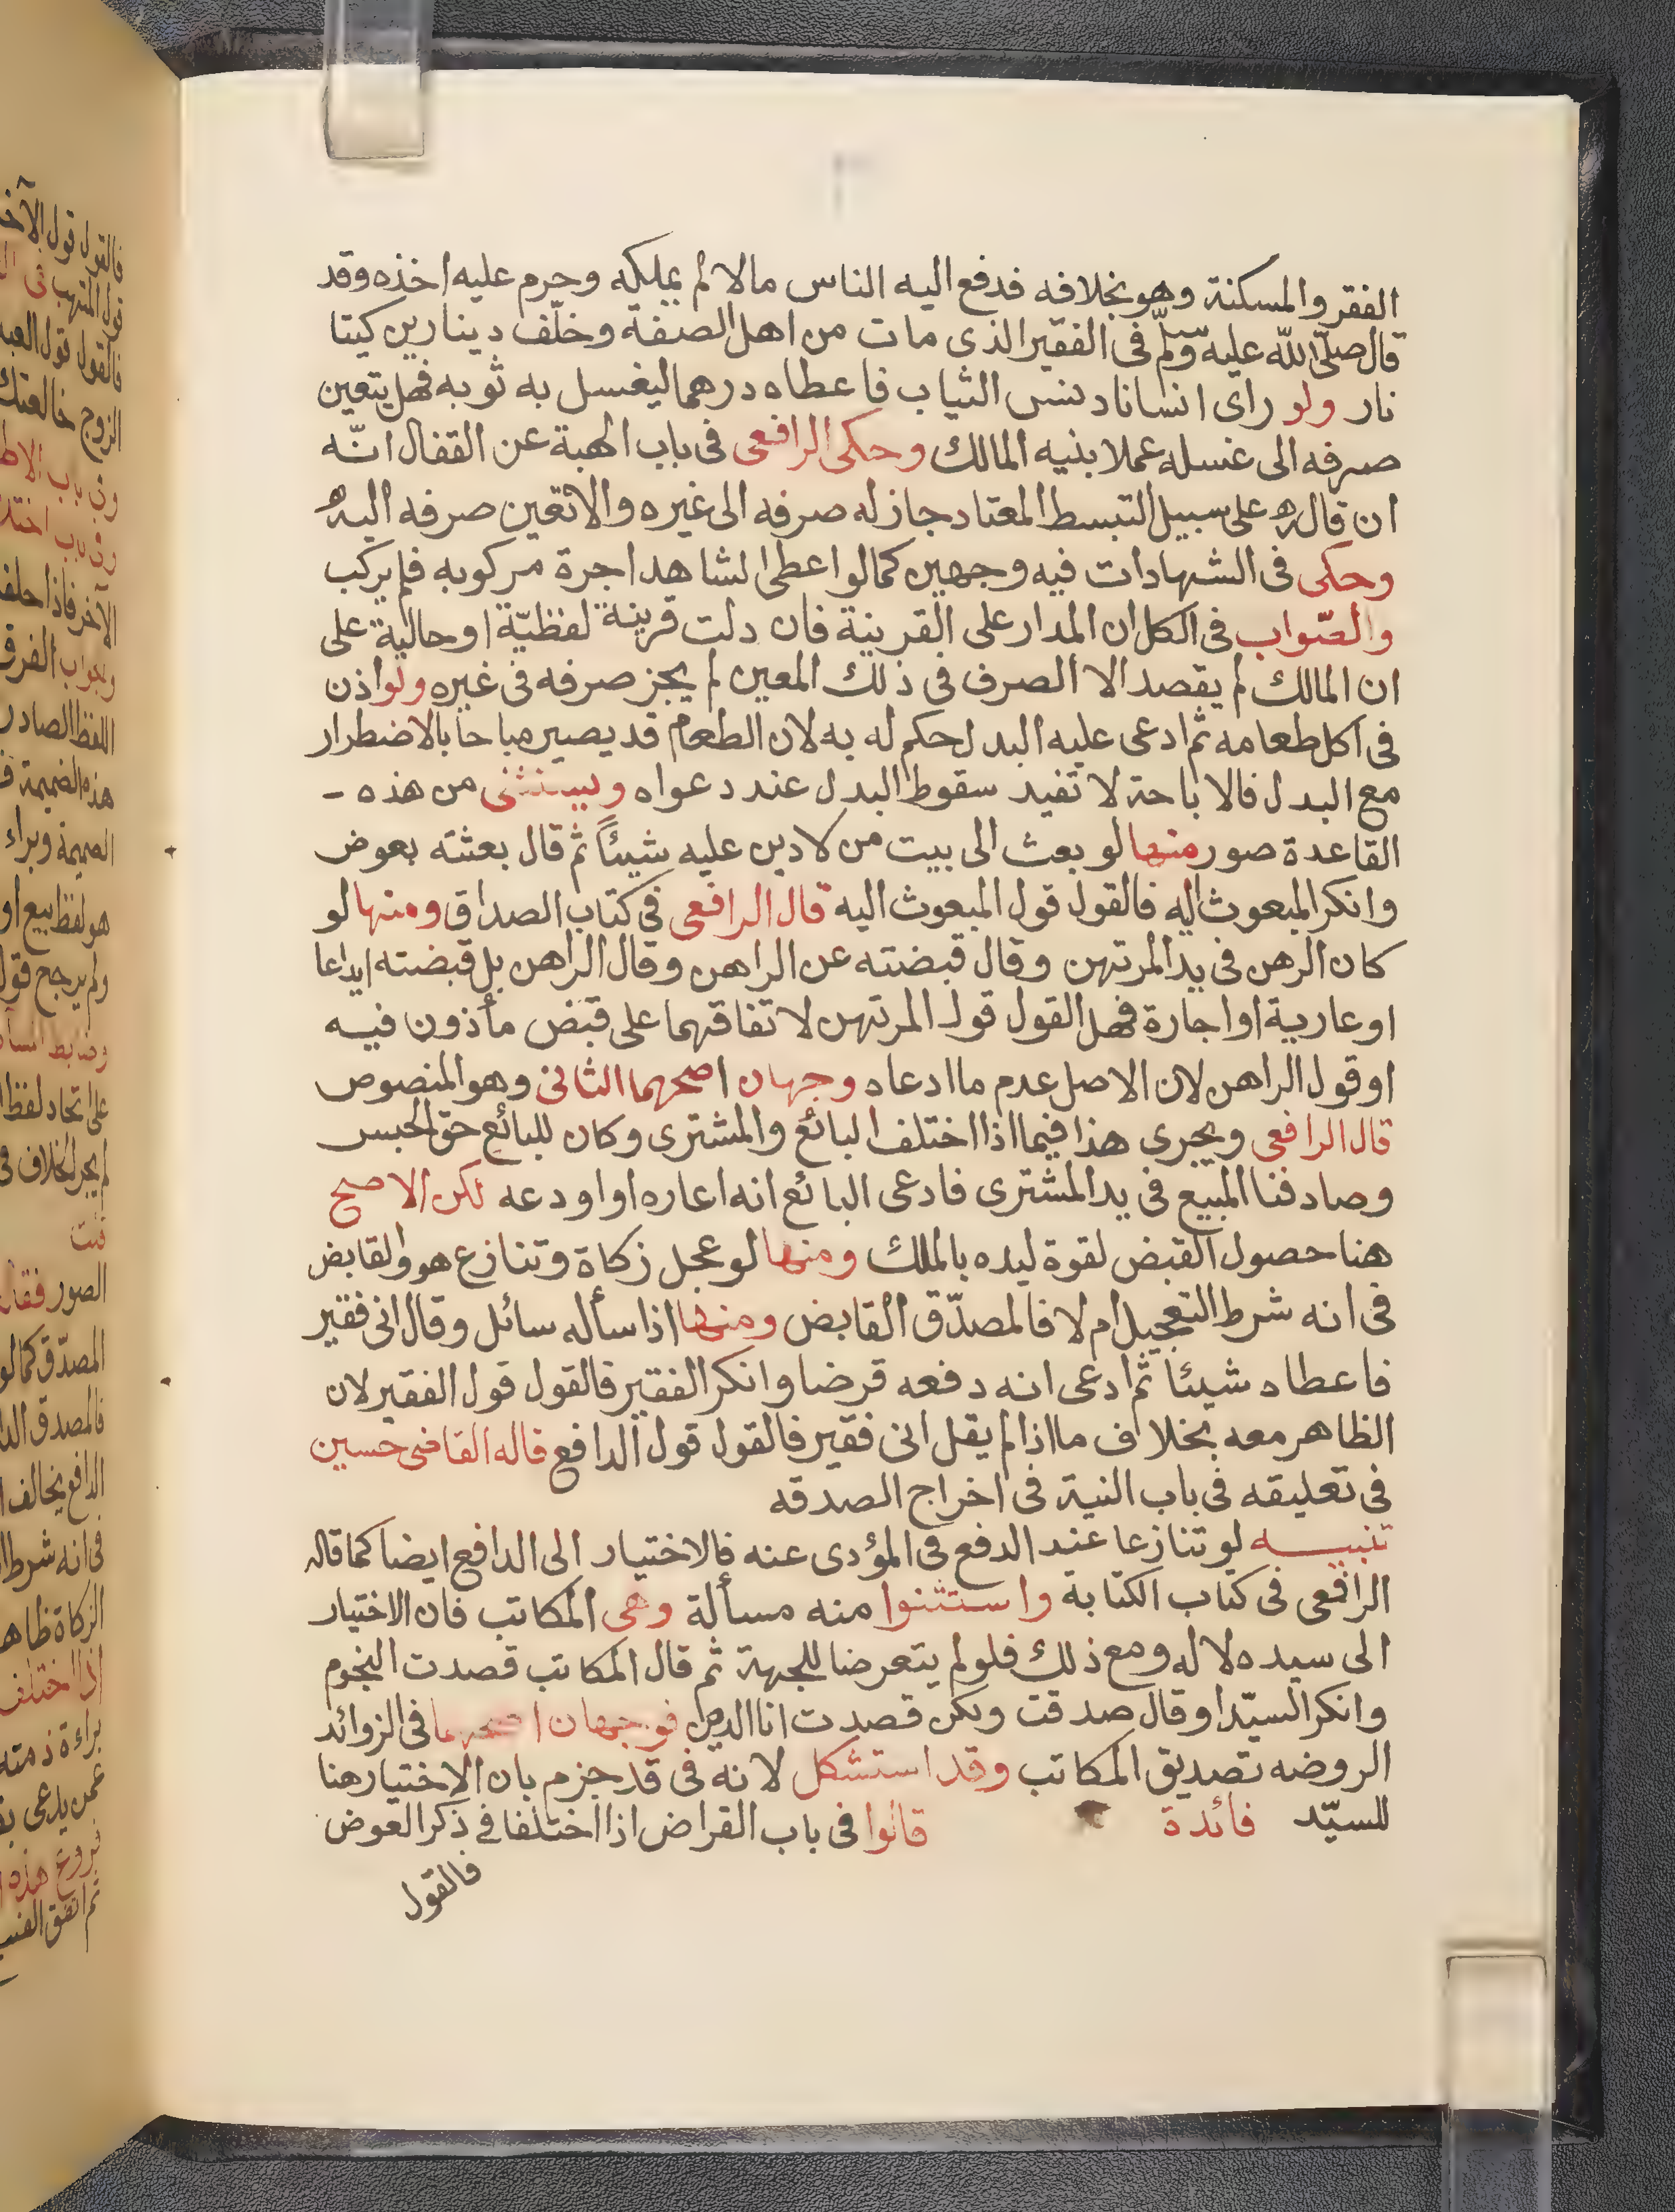 الفقر والمسكنة وهو بخلافه فدفع اليه الناس مالا لم يملكه وحرم عليه اخذه وقد
قال صلّى الله عليه وسلّم فى الفقير الذى مات من اهل الصفة وخلّف دينارين كيتا
نار ولو راى انسانا دنس الثياب فاعطاه درهما ليغسل به ثوبه فهل يتعين
صرفه الى غسله عملا بنيه المالك وحكى الرافعى فى باب الهبة عن القفال انّه
ان قاله على سبيل التبسط المعتاد جاز له صرفه الى غيره والا تعين صرفه اليه
وحكى فى الشهادات فيه وجهين كما لو اعطى الشاهد اجرة مركوبه فلم يركب
والصّواب فى الكل ان المدار على القرينة فان دلت قرينة لفظيّة او حالية على
ان المالك لم يقصد الا الصرف فى ذلك المعين لم يجز صرفه فى غيره ولو اذن
فى اكل طعامه ثم ادعى عليه البدل حكم له به لان الطعام قد يصير مباحا بالاضطرار
مع البدل فالاباحة لا تفيد سقوط البدل عند دعواه ويستثنى من هذه -
القاعدة صور منها لو بعث الى بيت من لا دين عليه شيئاً ثم قال بعثته بعوض
وانكر المبعوث اليه فالقول قول المبعوث اليه قال الرافعى فى كتاب الصداق ومنها لو
كان الرهن فى يد المرتهن وقال قبضته عن الراهن وقال الراهن بل قبضته ايداعا
او عارية او اجارة فهل القول قول المرتهن لاتفاقهما على قبض مأذون فيه
او قول الراهن لان الاصل عدم ما ادعاه وجهان اصحهما الثانى وهو المنصوص
قال الرافعى ويجرى هذا فيما اذا اختلف البائع والمشترى وكان للبائع حق الحبس
وصادفنا المبيع فى يد المشترى فادعى البائع انه اعاره او اودعه لكن الاصح
هنا حصول القبض لقوة ليده بالملك ومنها لو عجل زكاة وتنازع هو والقابض
فى انه شرط التعجيل ام لا فالمصدّق القابض ومنها اذا سأله سائل وقال انى فقير
فاعطاه شيئا ثم ادعى انه دفعه قرضا وانكر الفقير فالقول قول الفقير لان
الظاهر معه بخلاف ما اذا لم يقل انى فقير فالقول قول الدافع قاله القاضى حسين
فى تعليقه فى باب النية فى اخراج الصدقه
تنبيه لو تنازعا عند الدفع فى المؤدى عنه فالاختيار الى الدافع ايضا كما قاله
الرافعى فى كتاب الكتابة واستثنوا منه مسألة وهى المكاتب فان الاختيار
الى سيده لا له ومع ذلك فلو لم يتعرضا للجهة ثم قال المكاتب قصدت النجوم
وانكر السيّد او قال صدقت ولكن قصدت انا الدين فوجهان اصحهما فى الزوائد
الروضه تصديق المكاتب وقد استشكل لانه فى قد جزم بان الاختيار هنا
للسيّد فائدة قالوا فى باب القراض اذا اختلفا فى ذكر العوض
فالقول